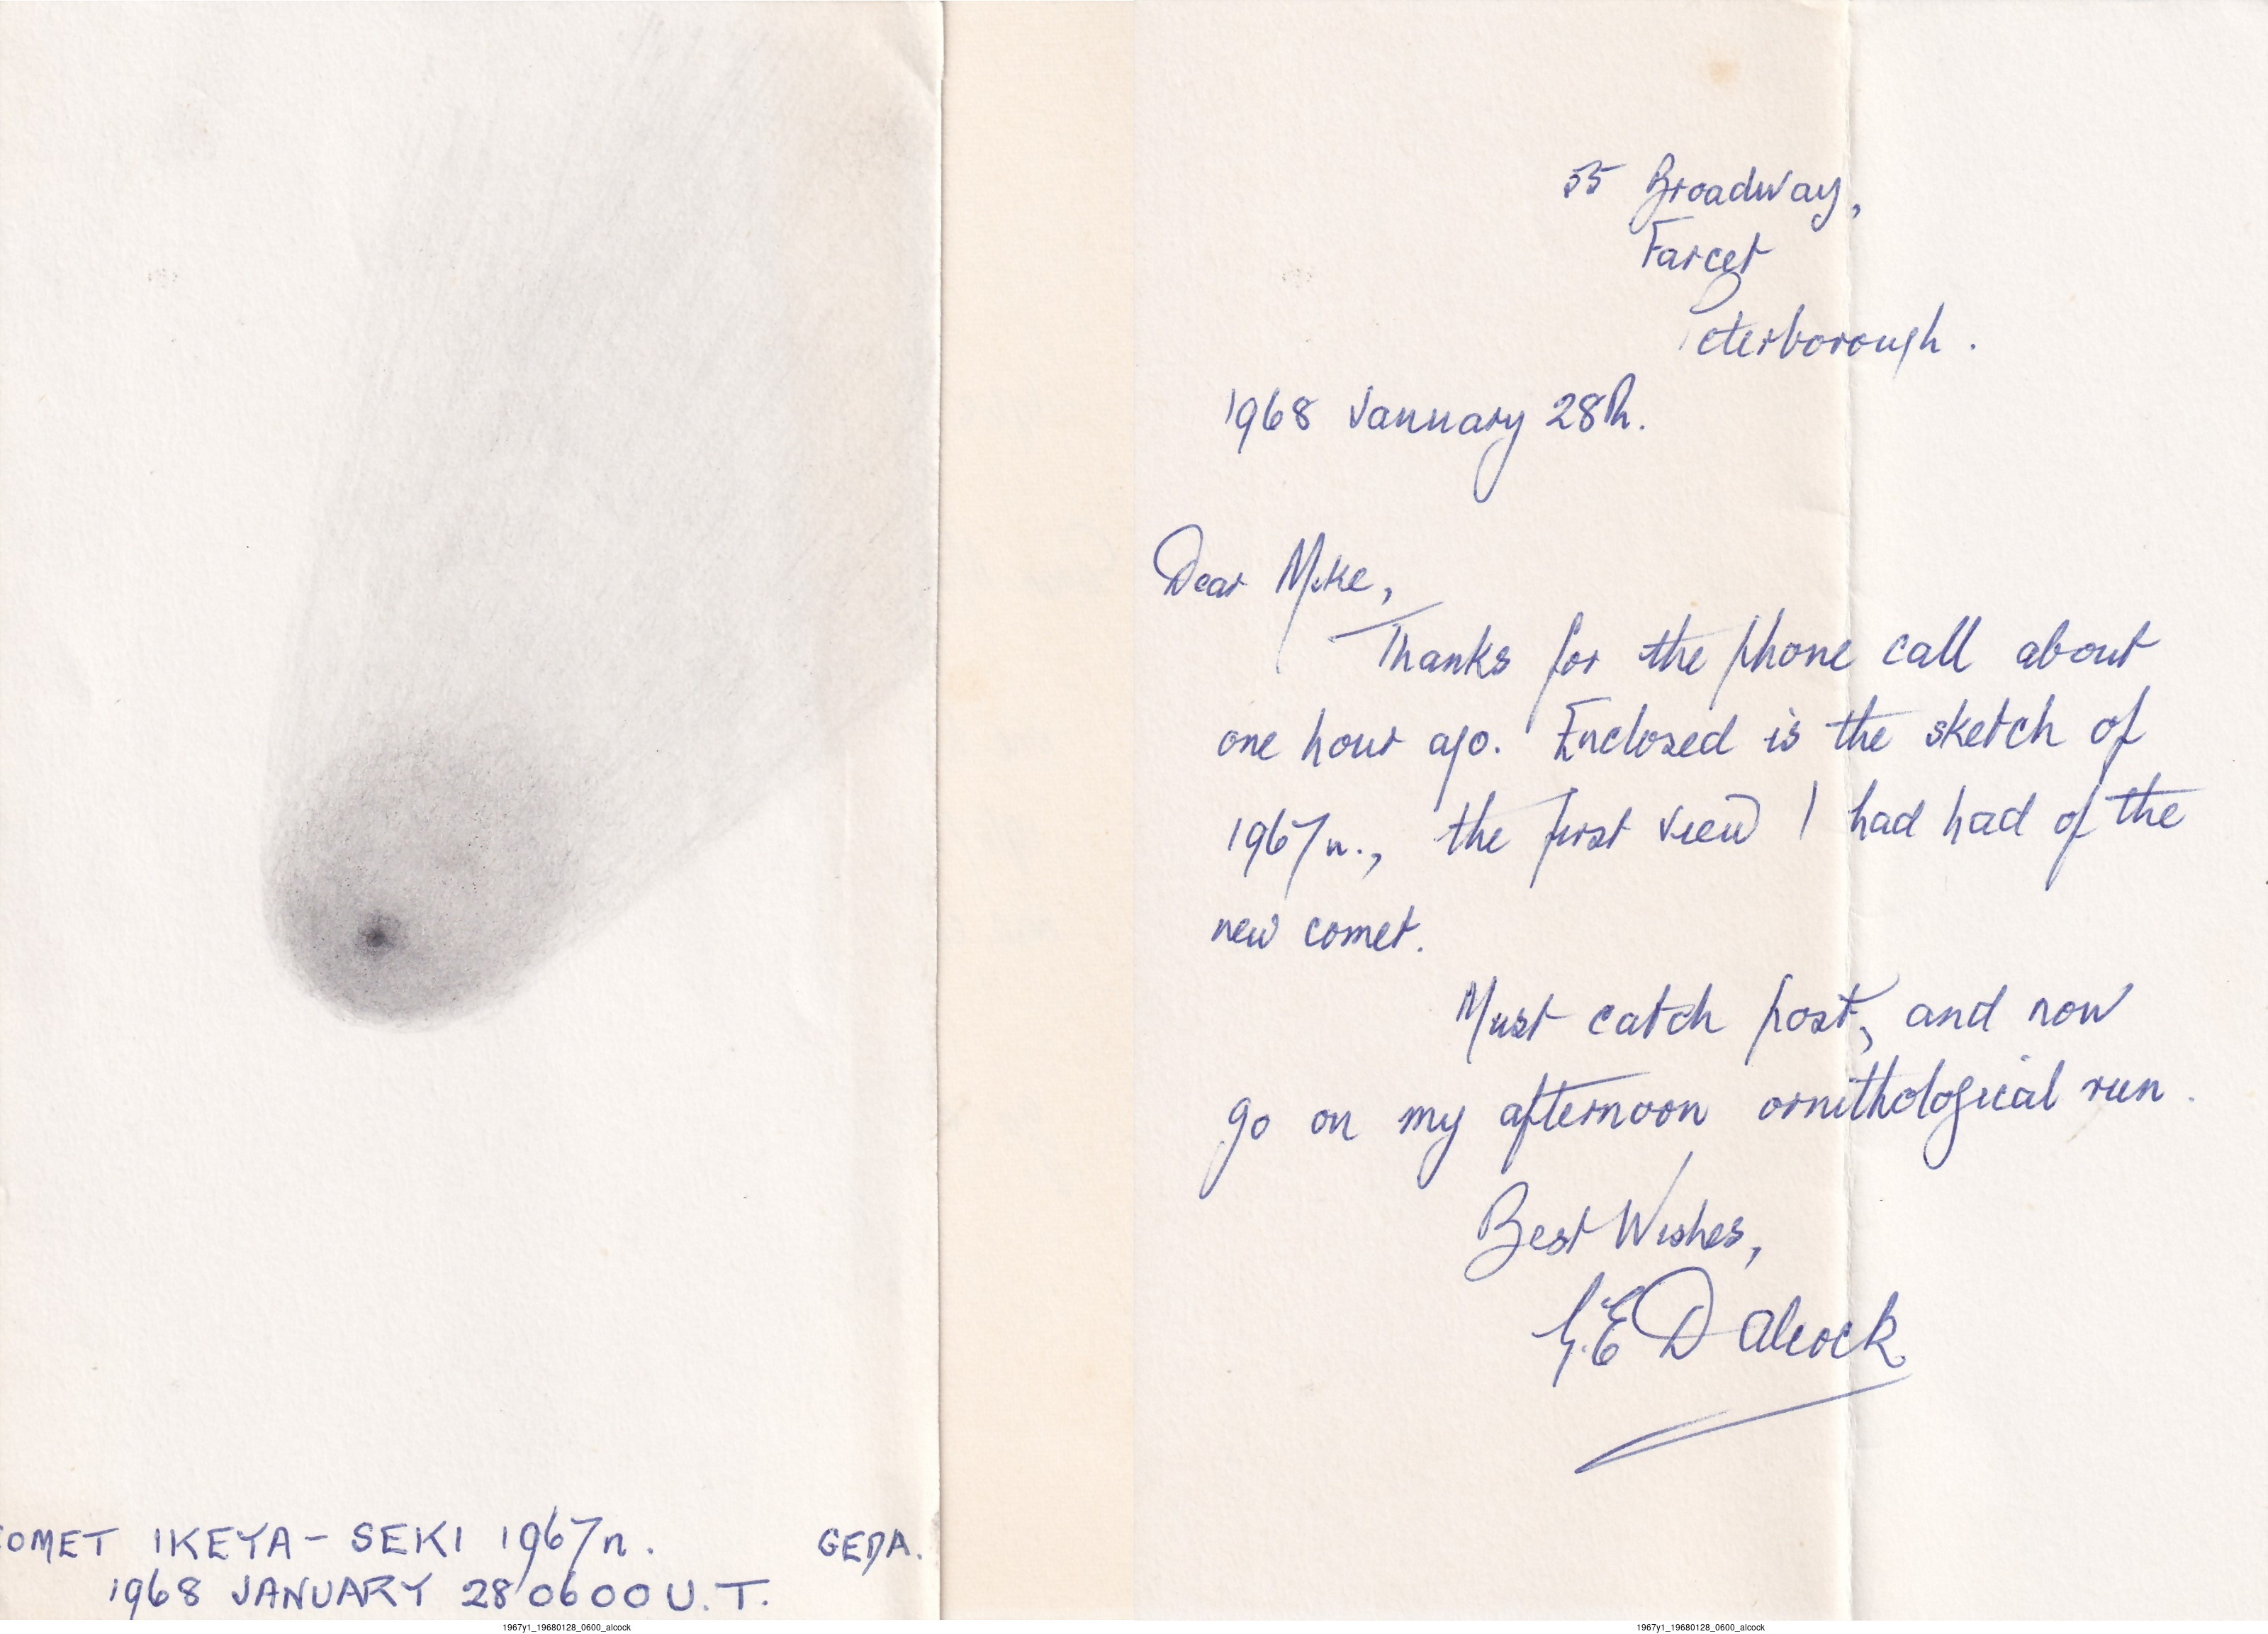 COMET IKEYA-SEKI 1967n. GEDA.
1968 JANUARY 28 0600 U.T.
1967y1_19680128_0600_alcock
55 Broadway,
Farcet
Peterborough.
1968 January 28th.
Dear Mike,
Thanks for the phone call about
one hour ago. Enclosed is the sketch of
1967n., the first view I had had of the
new comet.
Must catch post, and now
go on my afternoon ornithological run.
Best Wishes,
G.E D Alcock
1967y1_19680128_0600_alcock